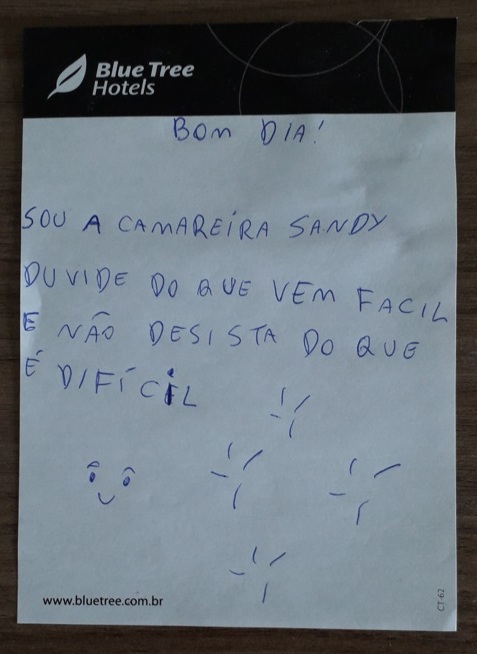 Blue Tree
Hotels
BOM DIA!
SOU A CAMAREÍRA SANDY
DUVIDE DO QUE VEM FACIL
E NÃO DESISTA DO QUE
É DIFÍCIL
www.bluetree.com.br
CT-62